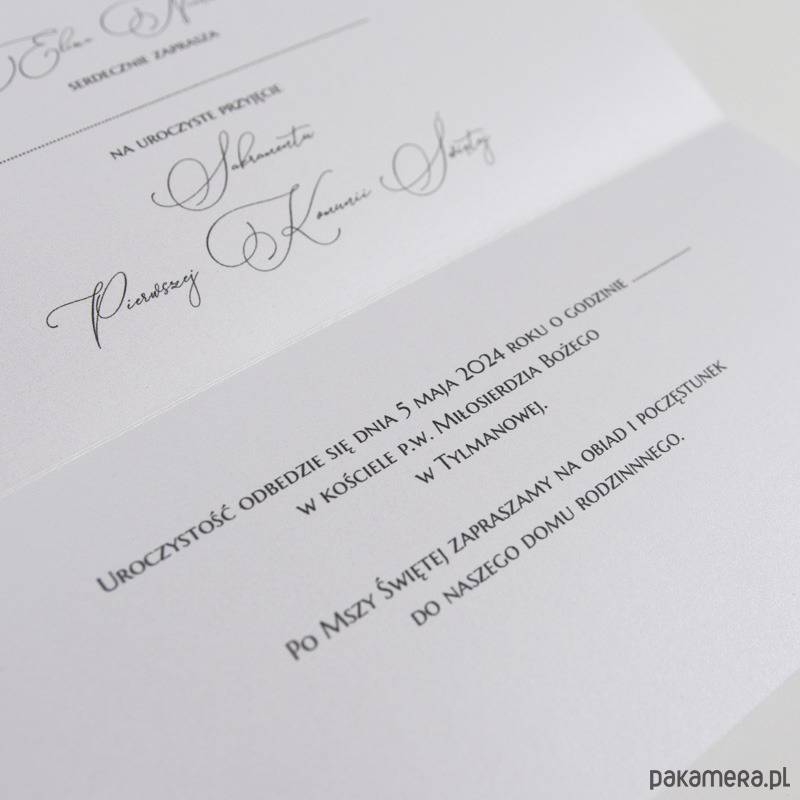 SERDECZNIE ZAPRASZA
NA UROCZYSTE PRZYJĘCIE
Sakramentu
Pierwszej Komunii Świętej
UROCZYSTOŚĆ ODBEDZIE SIĘ DNIA 5 MAJA 2024 ROKU O GODZINIE
W KOŚCIELE P.W. MIŁOSIERDZIA BOŻEGO
W TYLMANOWEJ.
PO MSZY ŚWIĘTEJ ZAPRASZAMY NA OBIAD I POCZĘSTUNEK
DO NASZEGO DOMU RODZINNNEGO.
pakamera.pl